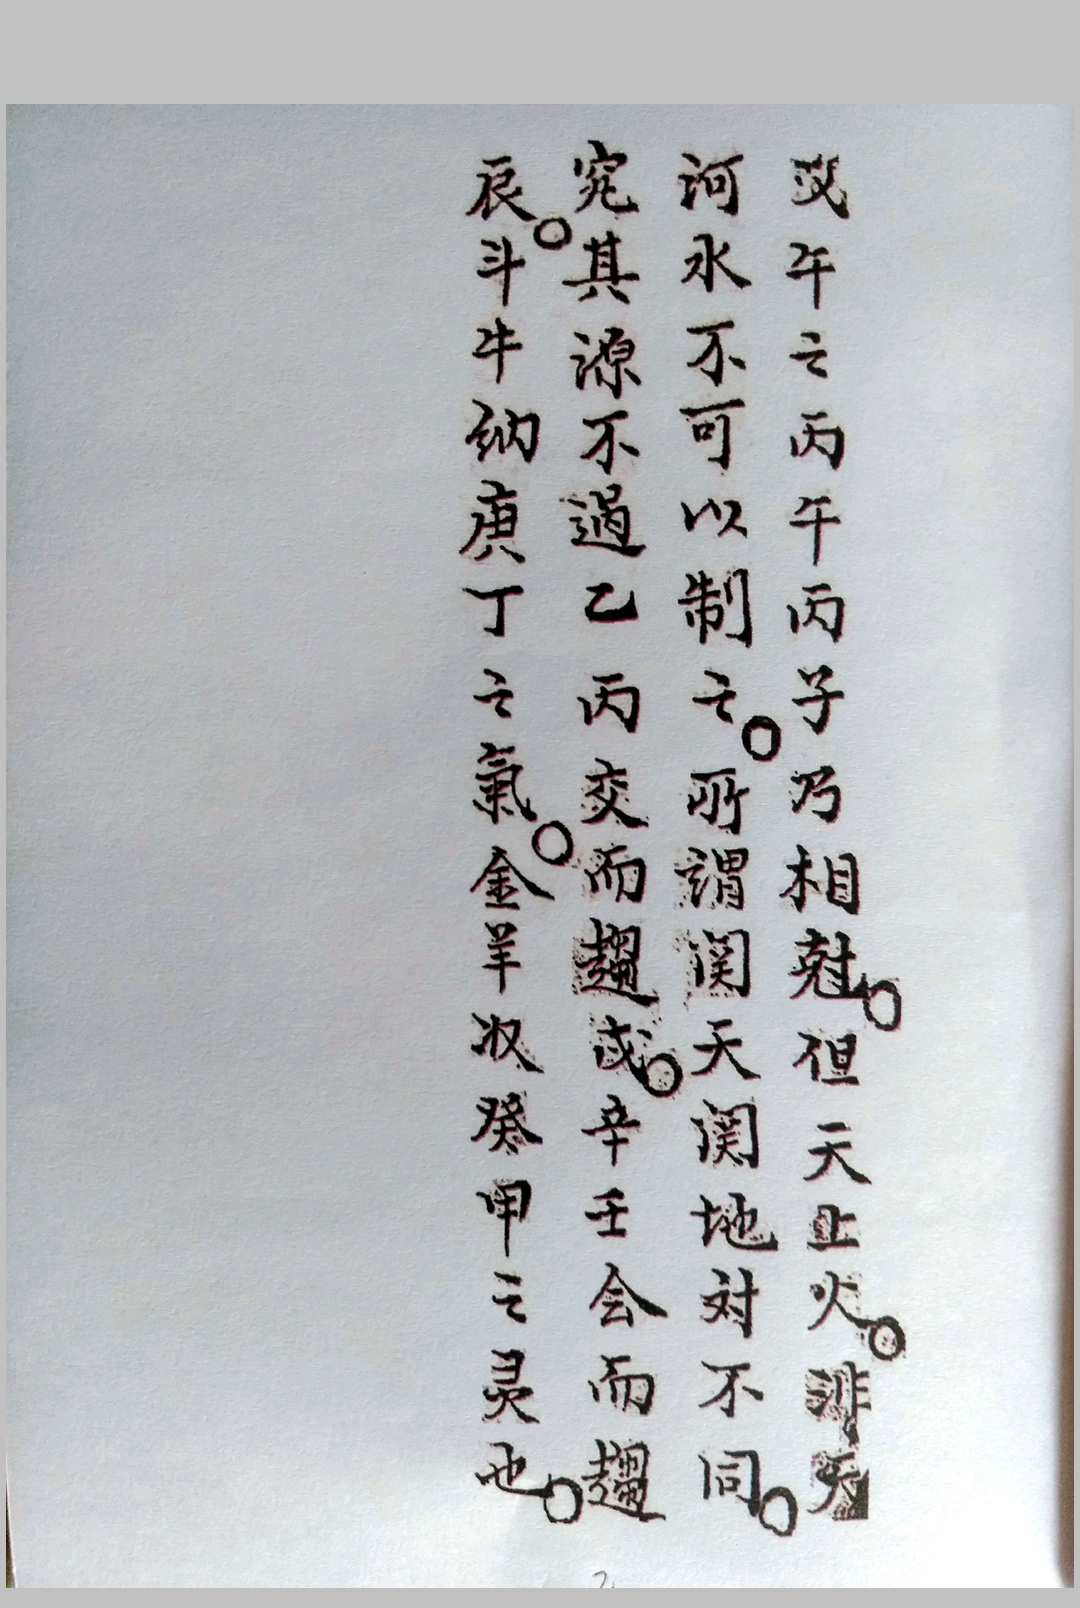 午之丙午丙子乃相尅。但天上火。非天
河水不可以制之。所謂関天関地对不同。
究其源不過乙丙交而趨戌。辛壬会而趨
辰。斗牛纳庚丁之氣。金羊收癸甲之灵也。